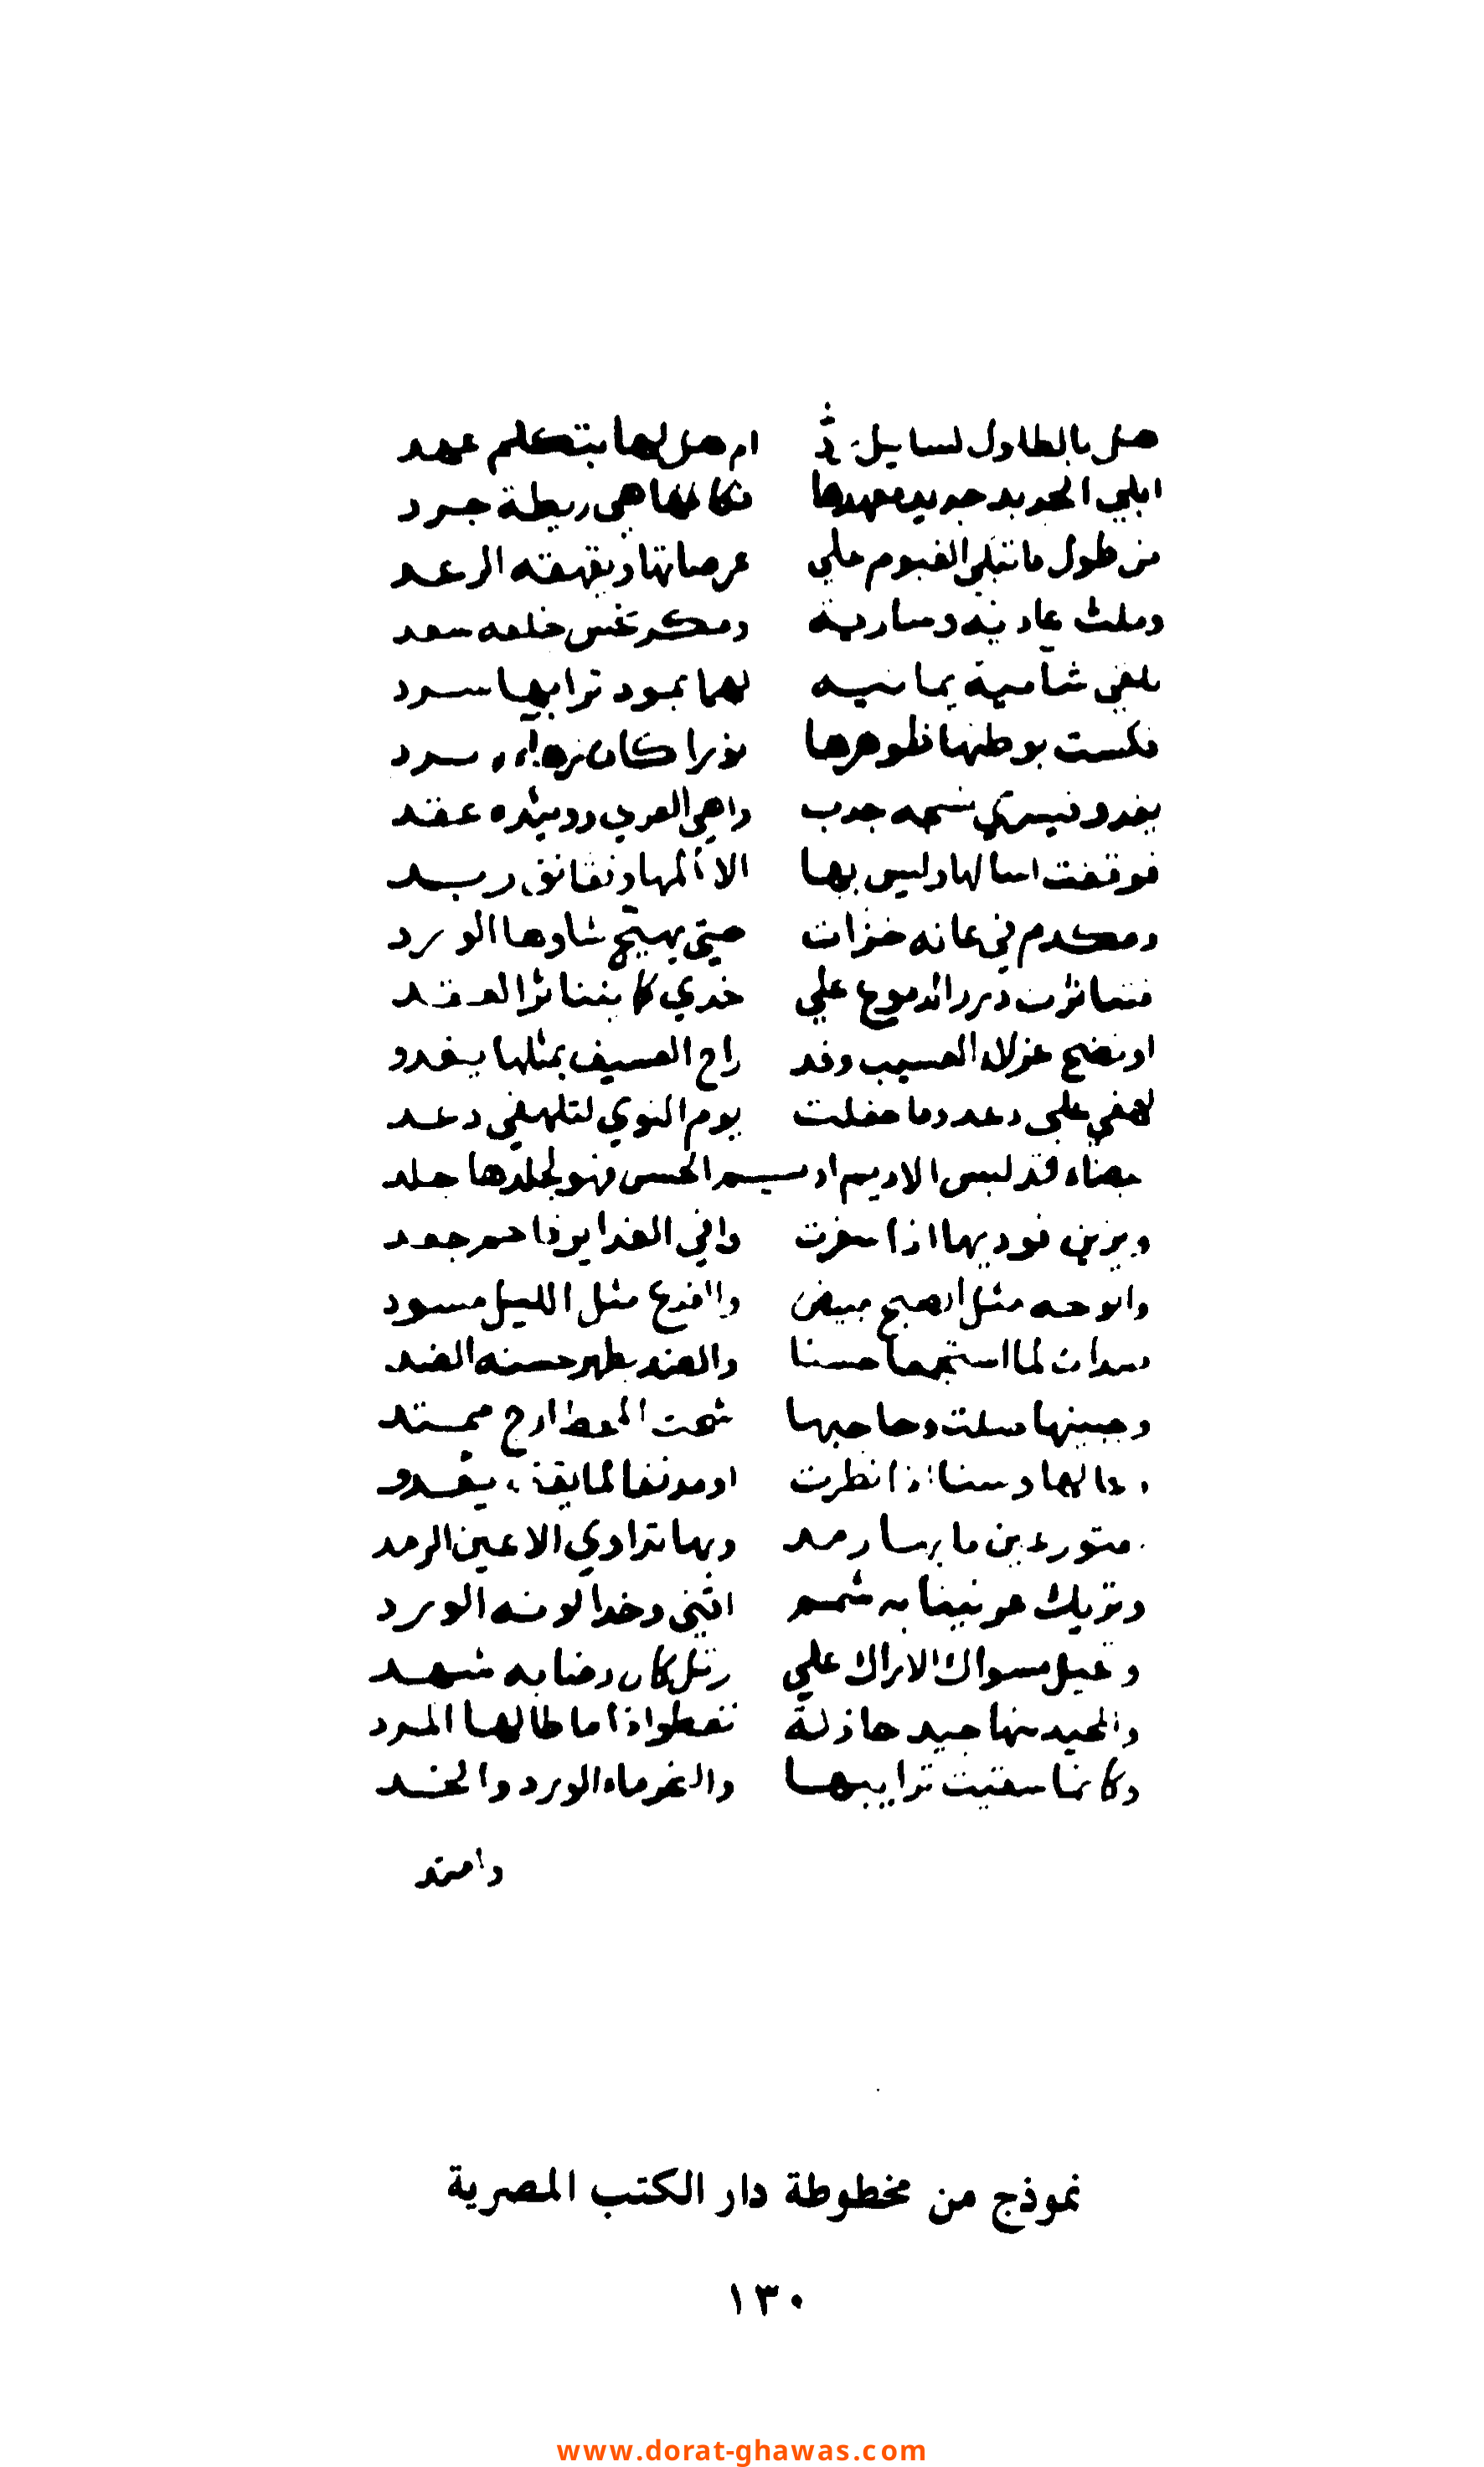 هل بالطلول لسايل رد ام هل لها بتكلم عهد
ابلي الجديد جديد معهدها فكانما هي ريطة جرد
من طول ما تبكي الغيوم علي عرصاتها ويقهقه الرعد
وملث غادية وسارية ومكر نحس خلفه سعد
تلقي شامية يمانيه لهما بمور ترابها سرد
فكست بوطنها ظوهرها نورا كان زهاءه برد
يغدو فيسري نسجه حدب واهي العري وينيره عقد
فوقفت اسالها وليس بها الا المها ونقانق ربد
ومكدم في عانه حتي يهيج شاوها الورد
فتناثرت درر الدموع علي خدي كما يتناثر العقد
او نضح عزلاء العسيب وقد راح العسيف بمثلها يغدو
لهفي علي دعد وما حفلت يوم النوي لتلهفي دعد
بيضاء قد لبس الاديم اديم الحسن فهو لجلدها جلد
ويزين فوديها اذا سفرت وافي الغداير فاحم جعد
والوجه مثل الصبح مبيض والفرع مثل الليل مسود
ضدان لما استجمعا حسنا والضد يظهر حسنه الضد
وجبينها صلت وحاجبها شحت المحط ازج ممتد
وكانها وسنا اذا نظرت او مدنف لما يفق بعد
بفتور عين ما بها رمد وبها تداوي الاعين الرمد
وتريك عرنينا به شمم اقني وخدا لونه الورد
وتجيل مسواك الاراك علي رتل كان رضابه شهد
والجيد منها جيد جازلة تعطوا اذا ما طالها المرد
وكانما سقيت ترايبها والنحر ماء الورد والخد
وامتد
نموذج من مخطوطة دار الكتب المصرية
١٣٠
www.dorat-ghawas.com